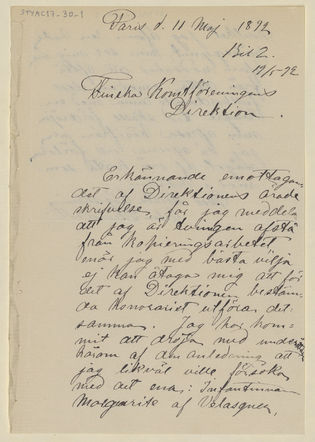 STYAC17-30-1
Paris d. 11 Maj 1892
Bil 2.
12/5-92
Finska Konstföreningens
Direktion.
Erkännande emottagan
det af Direktionens ärade
skrifvelse, får jag meddela
att jag är tvungen afstå
från kopieringsarbetet
enär jag med bästa vilja
ej kan åtaga mig att för
det af Direktionen bestäm-
da honorariet utföra det-
samma. Jag har kom-
mit att dröja med underrättelse
härom af den anledning att
jag likväl ville försöka
med det ena: Infantinnan
Marguerite af Velasquez,